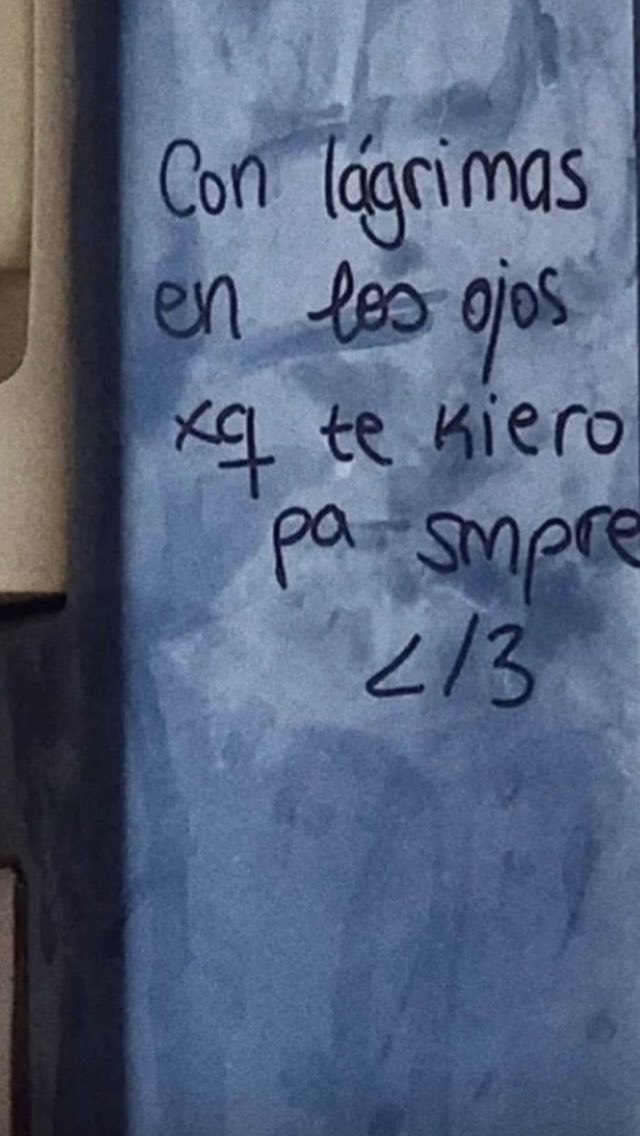 Con lágrimas
en los ojos
xq te kiero
pa smpre
</3